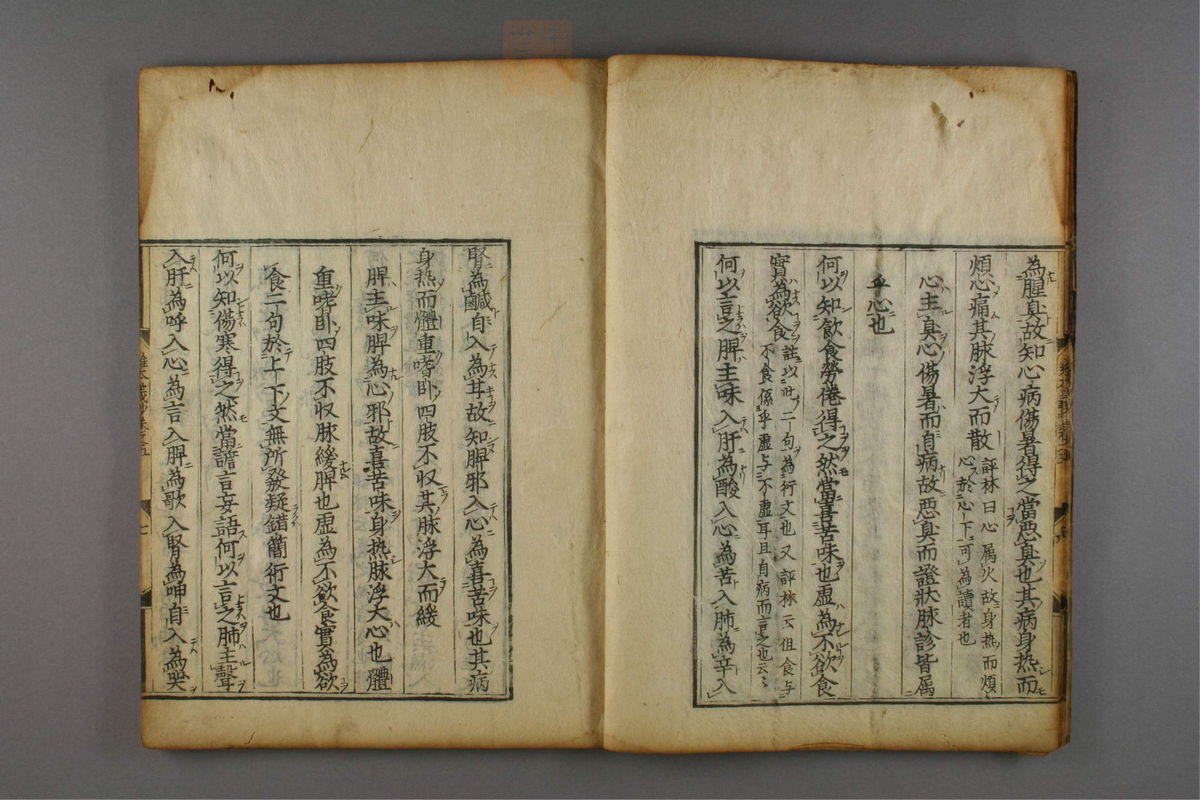 為腥臭故知心病傷暑得之當悪臭也其病身热而
煩心痛其脉浮大而散
評林曰心属火故身热而煩
心於心下可為讀者也
心主臭心傷暑而自病故悪臭而證狀脉診皆属
乎心也
何以知飲食勞倦得之然當喜苦味也虚為不欲食
實為欲食
註以此二句為衍文也又評林云但食与
不食係乎虚与不虚耳且自病而言之也云々
何以言之脾主味入肝為酸入心為苦入肺為辛入
腎為鹹自入為甘故知脾邪入心為喜苦味也其病
身热而體重嗜卧四肢不収其脉浮大而緩
脾主味脾為心邪故喜苦味身热脉浮大心也體
重嗜卧四肢不収脉緩脾也虚為不欲食實為欲
食二句於上下文無所發疑錯簡衍文也
何以知傷寒得之然當譫言妄語何以言之肺主聲
入肝為呼入心為言入脾為歌入腎為呻自入為哭